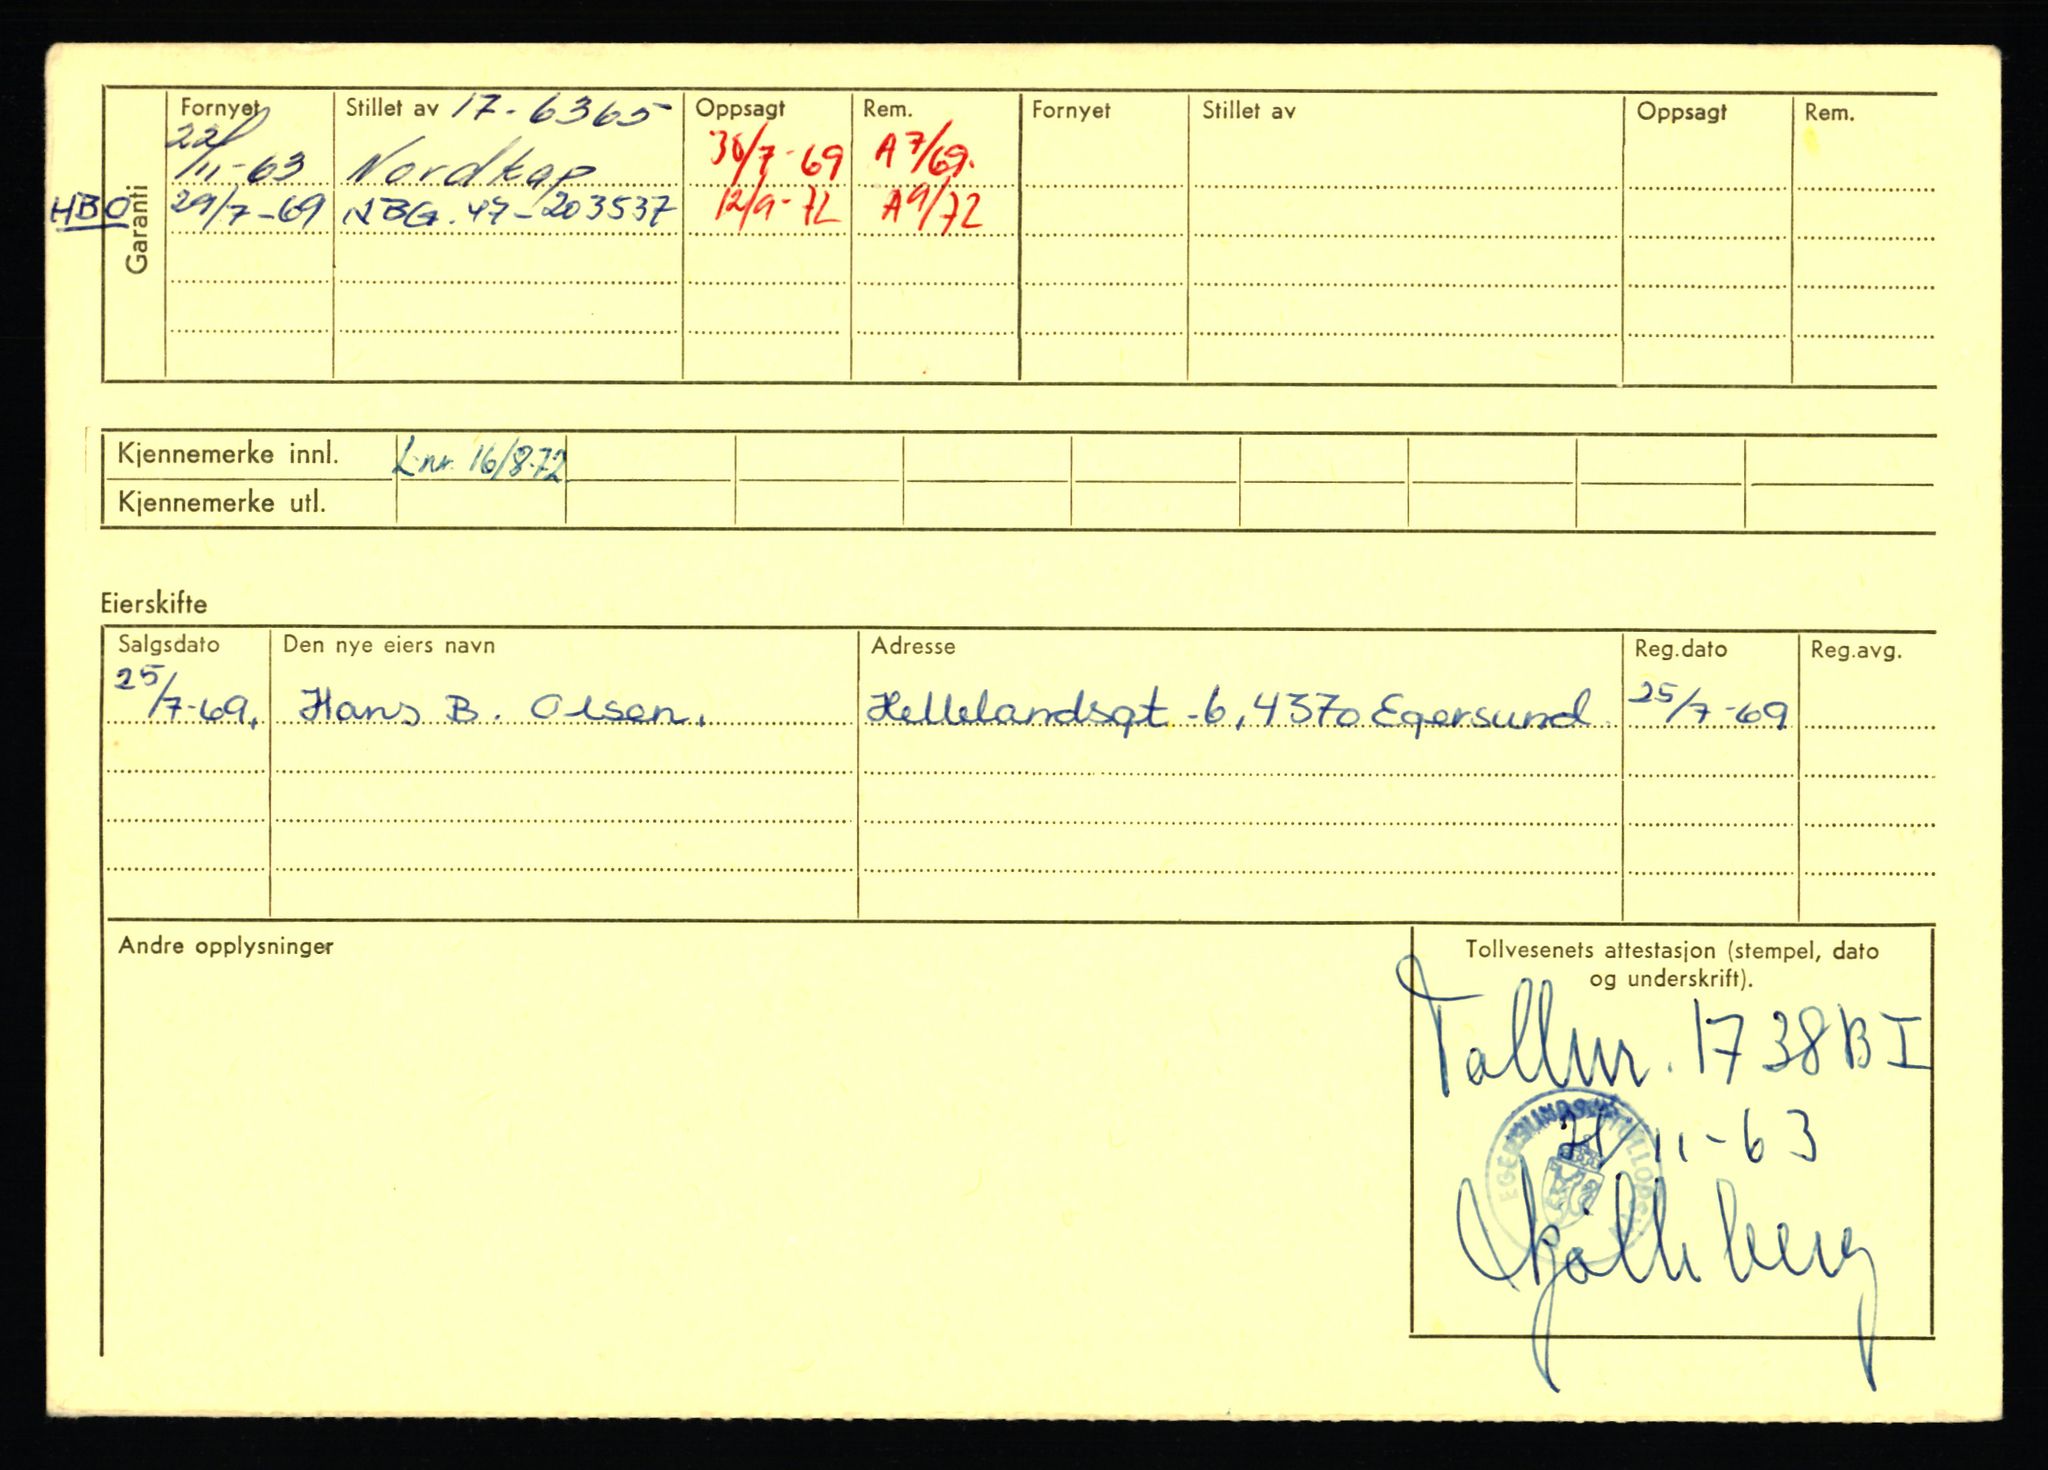 Fornyet Stillet av 17-6365 Oppsagt Rem. Fornyet Stillet av Oppsagt Rem.
22/11-63 Nordkap 30/7-69 A 7/69.
HBO 29/7-69 NBG. 47-203537 12/9-72 A 9/72
Garanti
Kjennemerke innl. L.nr. 16/8-72
Kjennemerke utl.
Eierskifte
Salgsdato Den nye eiers navn Adresse Reg.dato Reg.avg.
25/7-69. Hans B. Olsen. Hellelandsgt -6, 4370 Egersund 25/7-69
Andre opplysninger
Tollvesenets attestasjon (stempel, dato
og underskrift).
Tollnr. 1738 B I
21/11-63